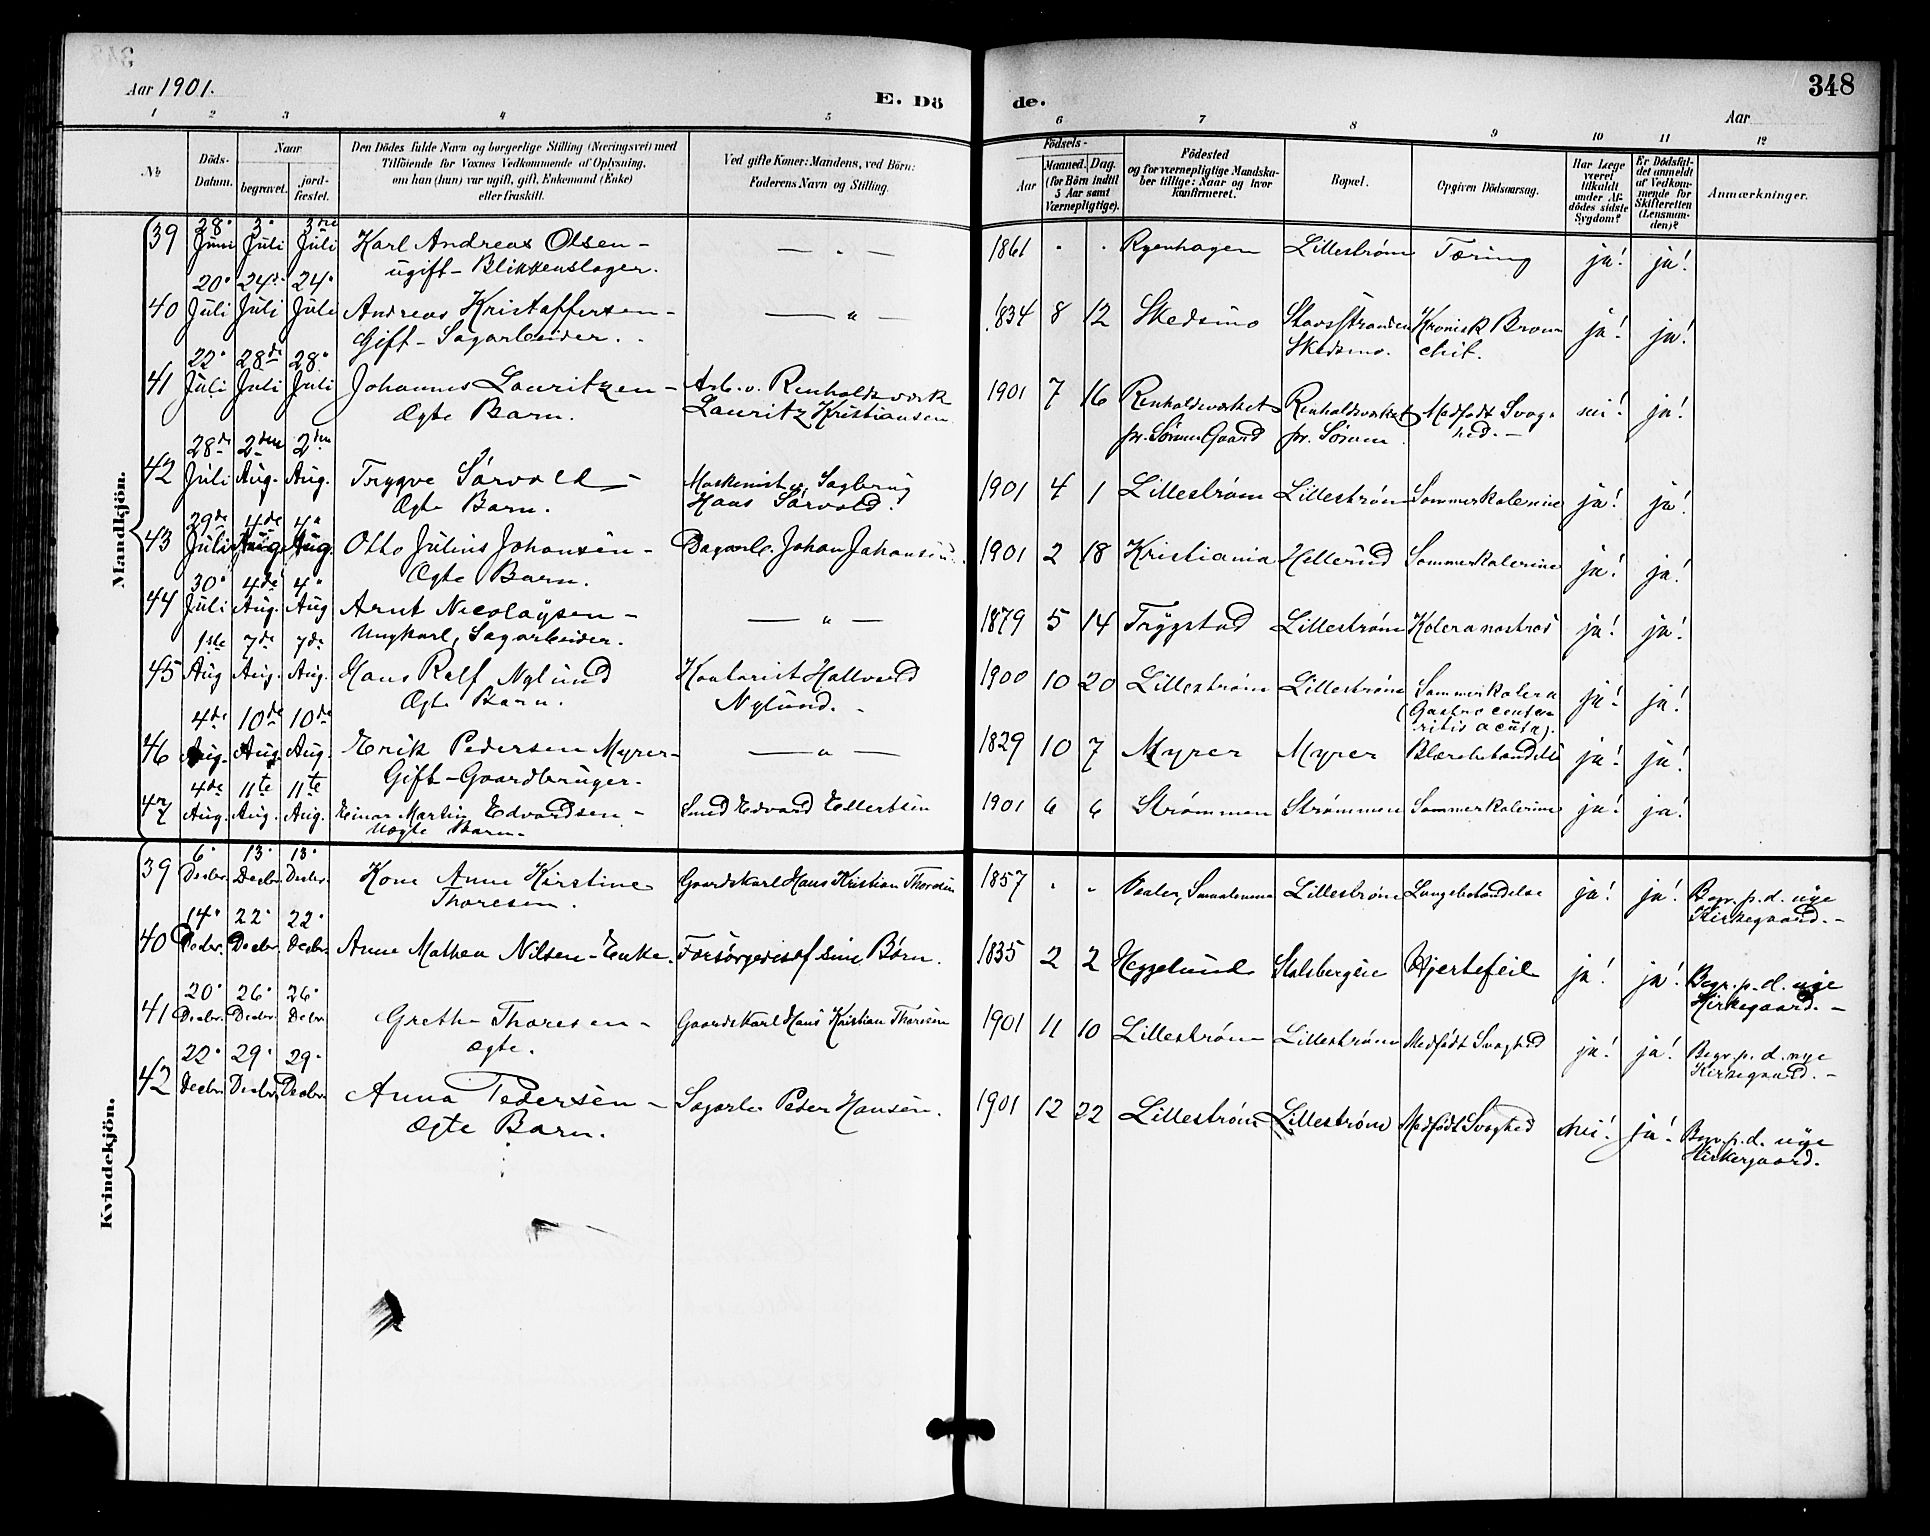 348
Aar 1901.
E. Dö
de.
Aar
1 2 3 4 5 6 7 8 9 10 11 12
No
Döds-Datum.
Naar
begravet.
jord-fæstet.
Den Dödes fulde Navn og borgerlige Stilling (Næringsvei) med
Tilföiende for Voxnes Vedkommende af Oplysning,
om han (hun) var ugift, gift, Enkemand (Enke)
eller fraskilt.
Ved gifte Koner: Mandens, ved Börn:
Faderens Navn og Stilling.
Födsels-
Aar
Maaned. Dag.
(for Börn indtil
5 Aar samt
Værnepligtige).
Födested
og for værnepligtige Mandska-
ber tillige: Naar og hvor
konfirmeret.
Bopæl.
Opgiven Dödsaarsag.
Har Læge
været
tilkaldt
under Af-
dödes sidste
Sygdom?
Er Dödsfal-
det anmeldt
af Vedkom-
mende for
Skifteretten
(Lensman-
den)?
Anmærkninger.
Mandkjön.
39 28. Juni 3. Juli 3die Juli Karl Andreas Olsen - — " — 1861 " " Ryenhagen Lillestrøm Tæring ja! ja!
ugift - Blikkenslager.
40 20. Juli 24de Juli 24. Juli Andreas Kristoffersen - — " — 1834 8 12 Skedsmo Stavsstranden Kronisk Bron
Gift - Sagarbeider. Skedsmo. chit. ja! ja!
41 22. Juli 28de Juli 28. Juli Johannes Lauritzen - Arb. v. Renholdsværk 1901 7 16 Renholdsværket Renholdsværket Medfødt Svag- nei! ja!
Ægte Barn. Lauritz Kristiansen pr. Sørum Gaard pr. Sørum hed. -
42 28de Juli 2den Aug. 2den Aug. Trygve Sörvold - Maskinist v. Sagbrug 1901 4 1 Lillestrøm Lillestrøm Sommerkolerine ja! ja!
Ægte Barn. Hans Sörvold.
43 29de Juli 4de Aug. 4. Aug. Otto Julius Johansen - Dagarb. Johan Johansen 1901 2 18 Kristiania Hellerud Sommerkolerine ja! ja!
Ægte Barn.
44 30. Juli 4de Aug. 4. Aug Arnt Nicolaysen - — " — 1879 5 14 Trygstad Lillestrøm Kolera nostras ja! ja!
Ungkarl, Sagarbeider.
45 1ste Aug 7de Aug. 7de Aug. Hans Rolf Nylund Kontorist Hallvard 1900 10 20 Lillestrøm Lillestrøm Sommerkolera ja! ja!
Ægte Barn. Nylund. - (Gastro ente-
ritis acuta).
46 4de Aug. 10de Aug 10de Aug. Erik Pedersen Myrer - — " — 1829 10 7 Myrer Myrer Blærebetændelse ja! ja!
Gift - Gaardbruger -
47 4de Aug. 11te Aug. 11te Aug. Einar Martin Edvardsen - Smed Edvard Ellertsen 1901 6 6 Strømmen Strømmen Sommerkolerine ja! ja!
Uægte Barn -
Kvindekjön.
39 6. Decbr. 13. Decbr. 13. Decbr. Kone Anne Kirstine Gaardskarl Hans Kristian Thoresen 1857 " " Vaaler, Smaalenene Lillestrøm Lungebetændelse ja! ja! Begr. p. d. nye
Thoresen. Kirkegaard. -
40 14. Decbr. 22. Decbr. 22. Decbr. Anne Mathea Nilsen - Enke. Forsörgedes af sine Børn. 1835 2 2 Heggelund Stalsbergeie Hjertefeil ja! ja! Begr. p. d. nye
Kirkegaard. -
41 20. Decbr. 26. Decbr. 26. Decbr. Grethe Thoresen - Gaardskarl Hans Kristian Thoresen 1901 11 10 Lillestrøm Lillestrøm Medfødt Svaghed ja! ja! Begr. p. d. nye
Ægte. Kirkegaard. -
42 22. Decbr. 29. Decbr. 29. Decbr. Anna Pedersen - Sagarb. Peder Hansen. 1901 12 22 Lillestrøm Lillestrøm Medfødt Svaghed Nei! ja! Begr. p. d. nye
Ægte Barn. Kirkegaard.